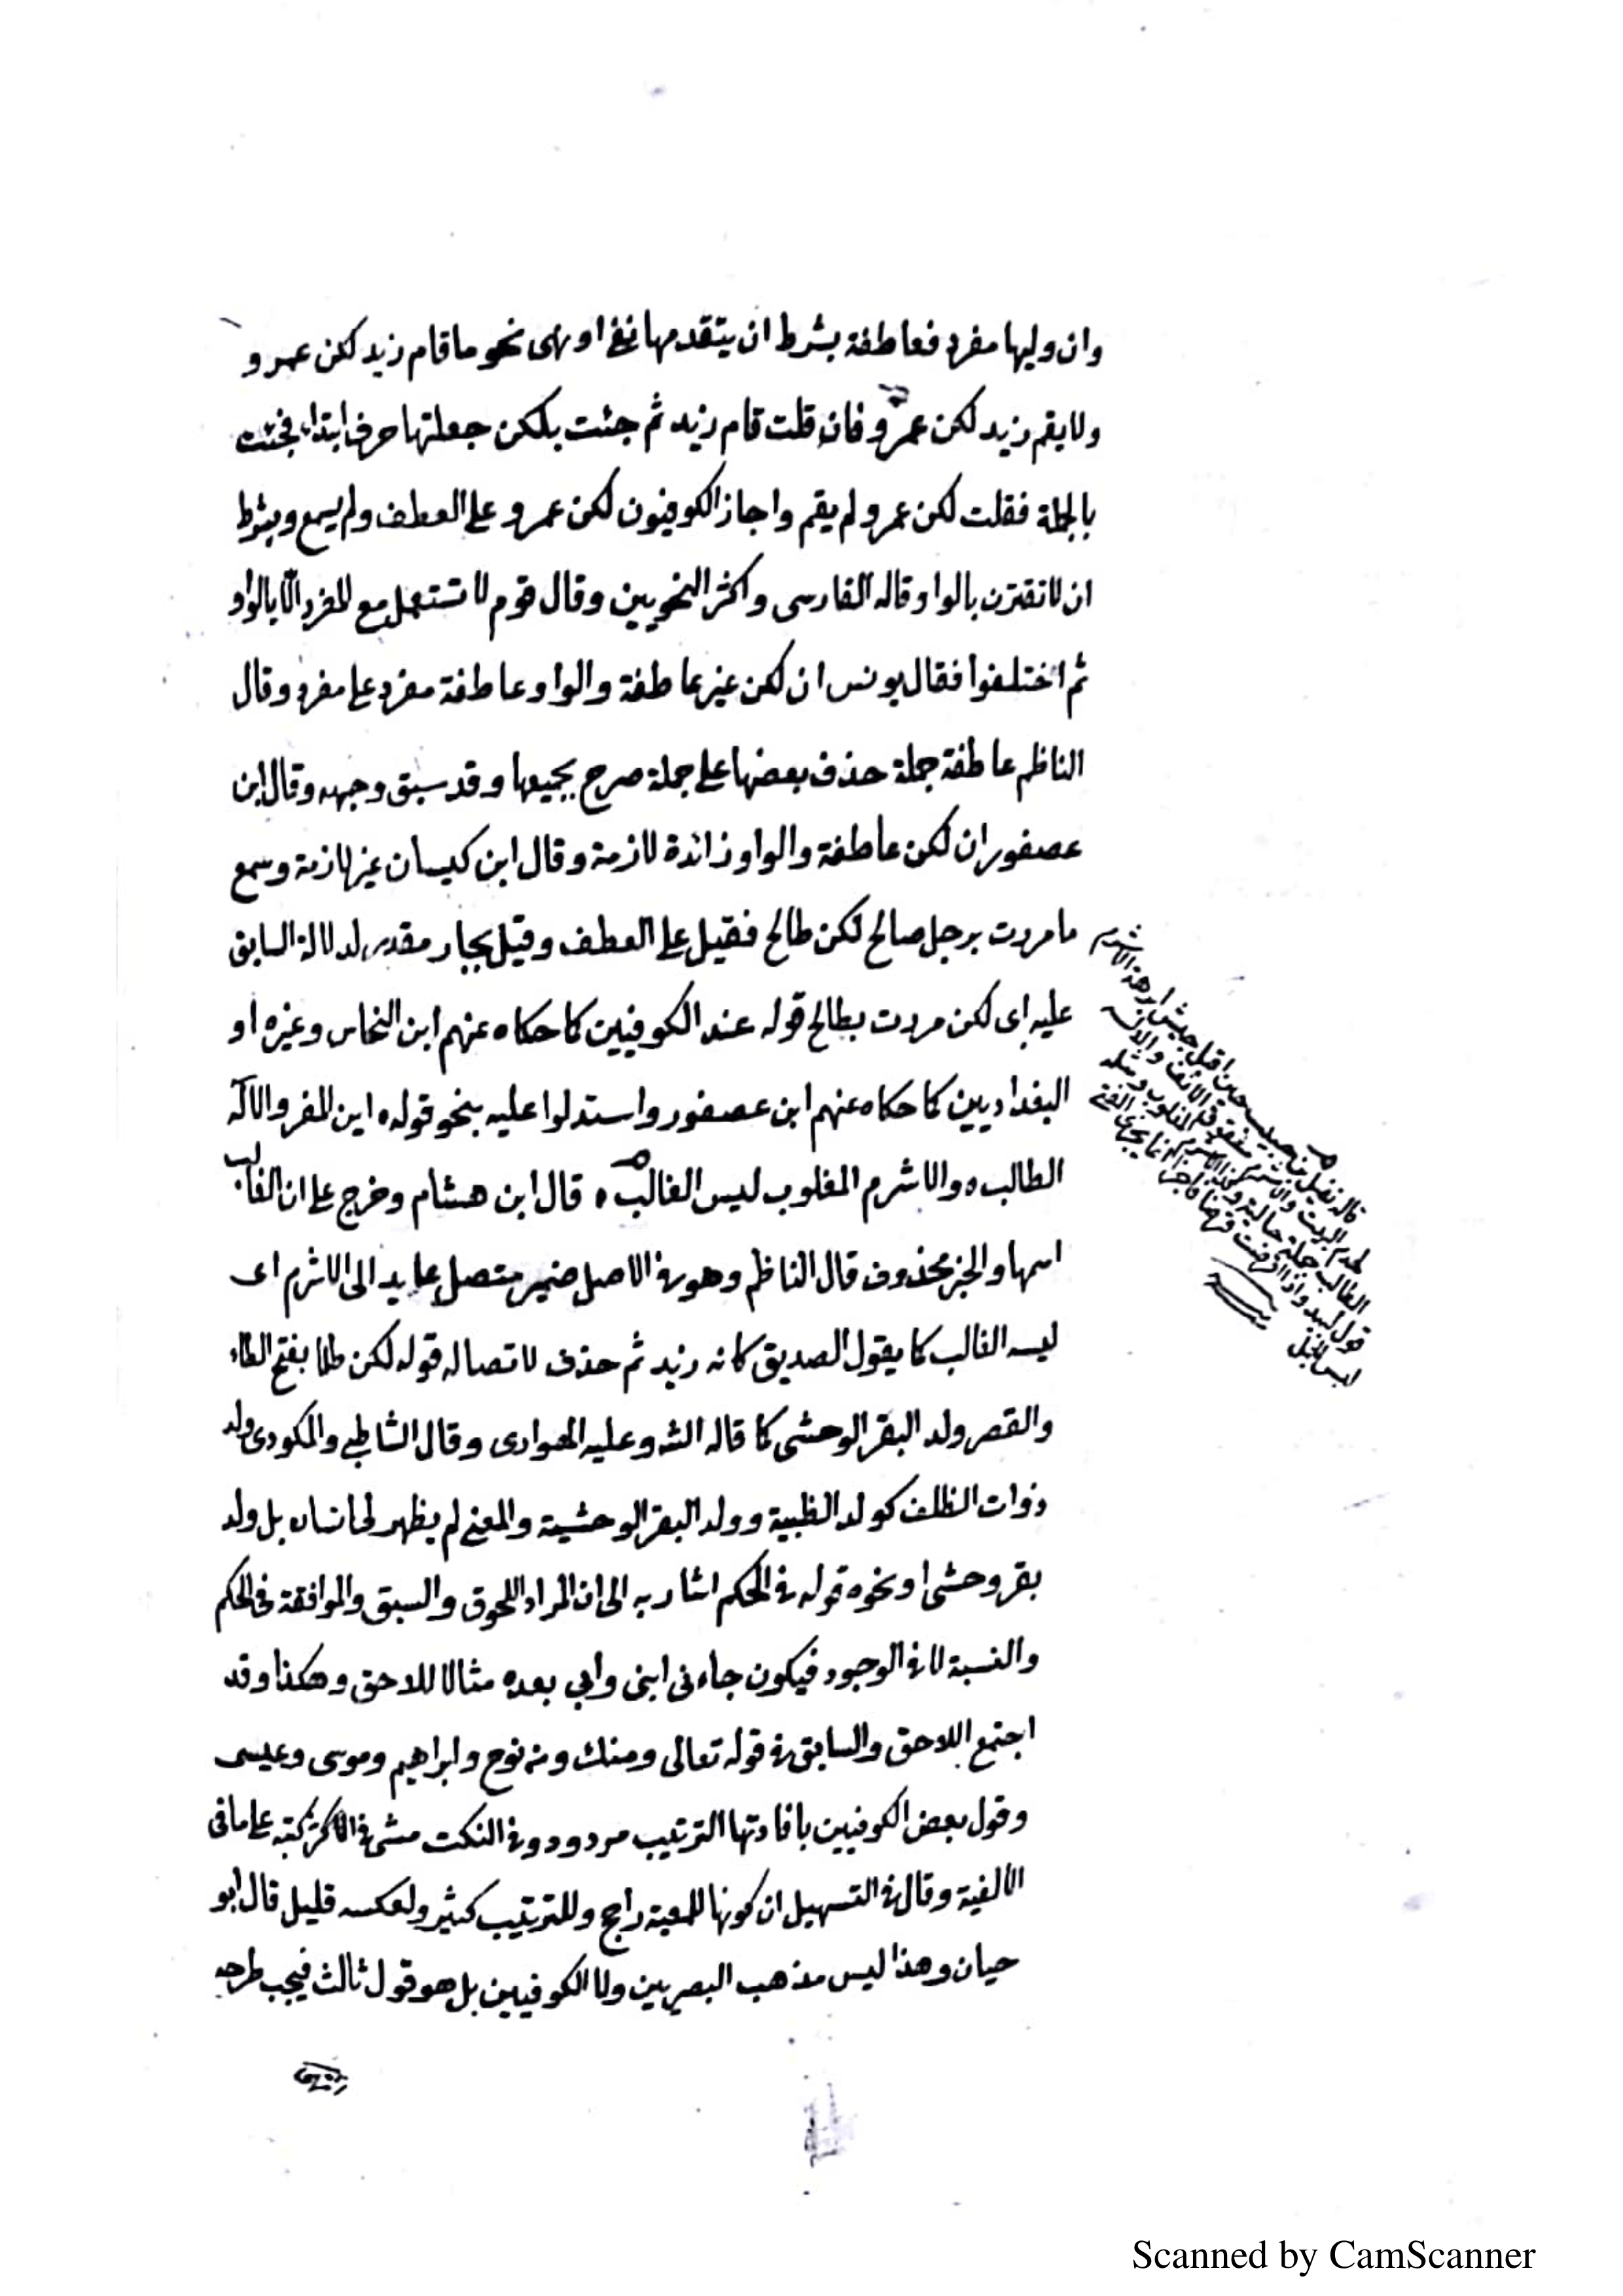 وان وليها مفرد فعاطفة بشرط ان يتقدمها نفي او نهى نحو ما قام زيد لكن عمرو
ولا يقم زيد لكن عمرو فان قلت قام زيد ثم جئت بلكن جعلتها حرف ابتداء فجئت
بالجملة فقلت لكن عمرو لم يقم واجاز الكوفيون لكن عمرو على العطف ولم يسمع ويشترط
ان لا تقترن بالواو قاله الفارسى واكثر النحويين وقال قوم لا تستعمل مع المفرد الا بالواو
ثم اختلفوا فقال يونس ان لكن غير عاطفة والواو عاطفة مفرد على مفرد وقال
الناظم عاطفة جملة حذف بعضها على جملة صرح بجميعها وقد سبق وجهه وقال ابن
عصفور ان لكن عاطفة والواو زائدة لازمة وقال ابن كيسان غير لازمة وسمع
ما مررت برجل صالح لكن طالح فقيل على العطف وقيل بجار مقدر لدلالة السابق
عليه اى لكن مررت بطالح قوله عند الكوفيين كما حكاه عنهم ابن النحاس وغيره او
البغداديين كما حكاه عنهم ابن عصفور واستدلوا عليه بنحو قوله ه اين المفر والاله
الطالب ه والاشرم المغلوب ليس الغالب ه قال ابن هشام وخرج على ان الغالب
اسمها والخبر محذوف قال الناظم وهو فى الاصل ضمير متصل عايد الى الاشرم اى
ليسه الغالب كما يقول الصديق كانه زيد ثم حذف لاتصاله قوله لكن طلا بفتح الطاء
والقصر ولد البقر الوحشى كما قاله الش وعليه الهوارى وقال الشاطبى والمكودى ولد
ذوات الظلف كولد الظبية وولد البقر الوحشية والمعنى لم يظهر لى انسان بل ولد
بقر وحشى او نحوه قوله فى الحكم اشار به الى ان المراد اللحوق والسبق والموافقة فى الحكم
والنسبة لا فى الوجود فيكون جاءنى ابنى وابي بعده مثالا للاحق وهكذا وقد
اجتمع اللاحق والسابق فى قوله تعالى ومنك ومن نوح وابراهيم وموسى وعيسى
وقول بعض الكوفيين بافادتها الترتيب مردود وفى النكت مشى فى اكثر كتبه على ما فى
الالفية وقال فى التسهيل ان كونها للمعية راجح وللترتيب كثير ولعكسه قليل قال ابو
حيان وهذا ليس مذهب البصريين ولا الكوفيين بل هو قول ثالث فيجب طرحه
قاله نفيل بن حبيب حين اقبل جيش ابرهة الاشرم
Scanned by CamScanner